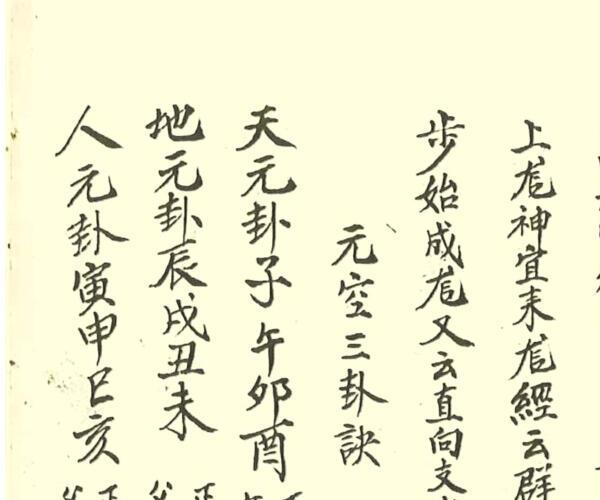 上龙神宜来龙經云群
步始成龙又云直向支
元空三卦訣
天元卦子午卯酉
地元卦辰戌丑未
人元卦寅申巳亥